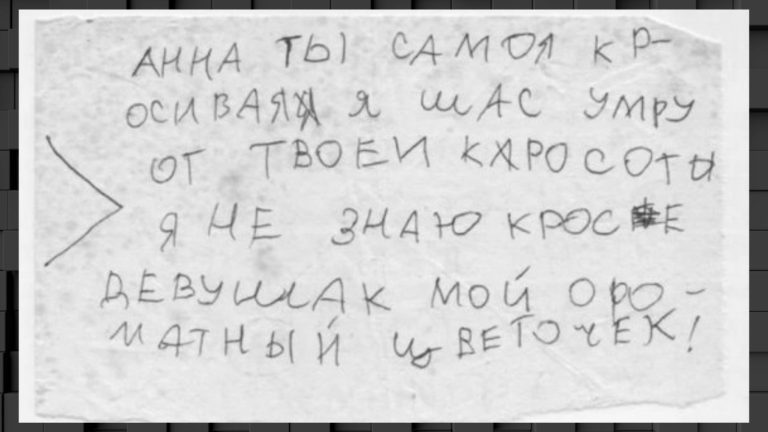 АННА ТЫ САМОЯ КР-
ОСИВАЯ Я ШАС УМРУ
ОТ ТВОЕИ КРОСОТЫ
Я НЕ ЗНАЮ КРОСЕ
ДЕВУШАК МОЙ ОРО-
МАТНЫЙ ЦВЕТОЧЕК!